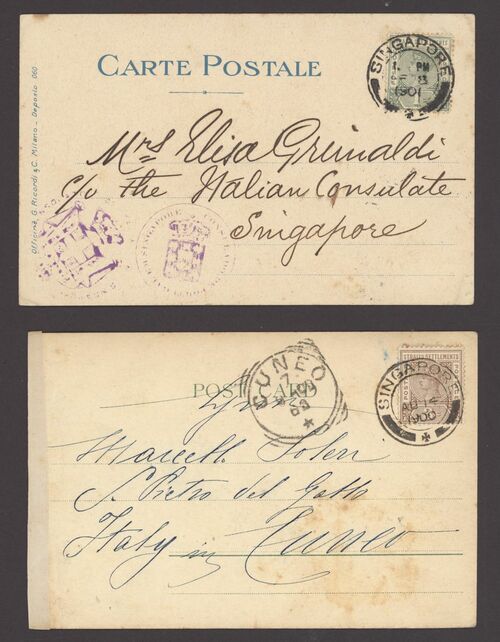 CARTE POSTALE
SINGAPORE
PM
1901
Mrs Elisa Grimaldi
c/o the Italian Consulate
Singapore
Officine G. Ricordi & C. Milano - Deposto 060
POST CARD
CUNEO
STRAITS SETTLEMENTS
SINGAPORE
AU 14
1900
Marcello Soleri
S. Pietro del Gallo
Italy in Cuneo